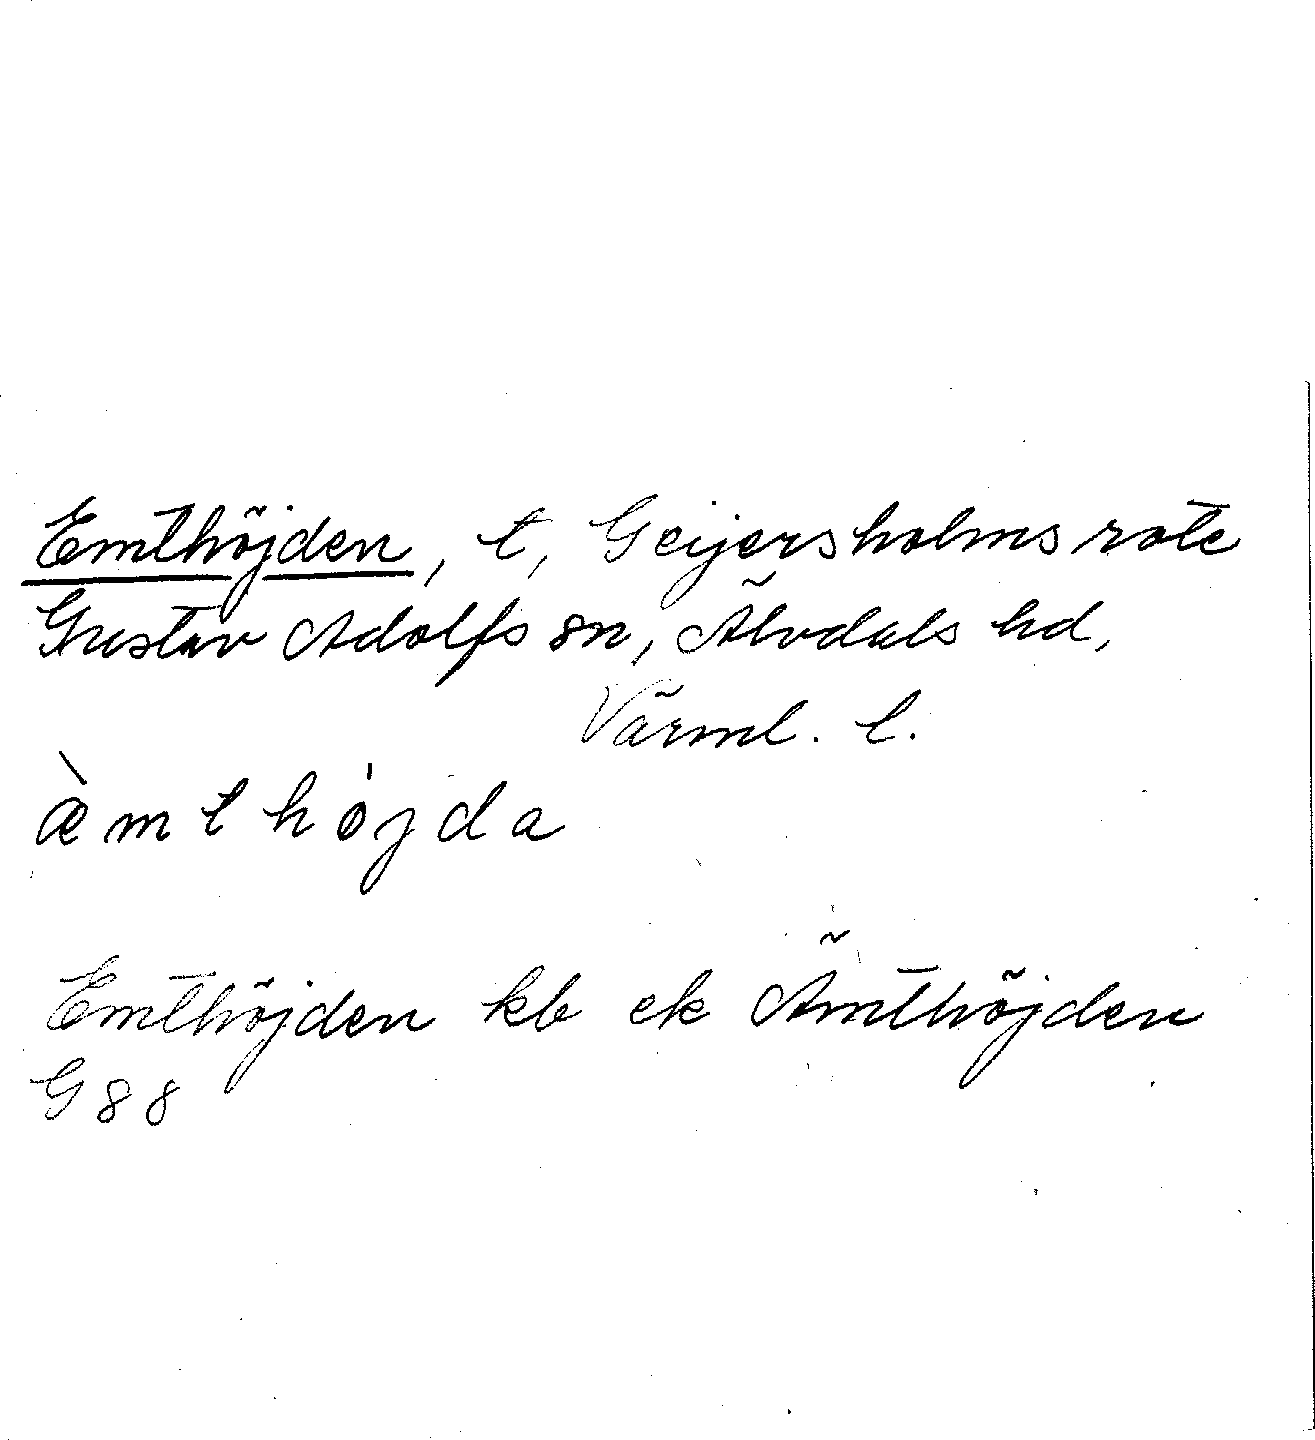 Emthöjden, t, Geijersholms rote
Gustav Adolfs sn, Älvdals hd,
Värml. l.
æ̀mthǿjda
Emthöjden kb ek Ämthöjden
G 88